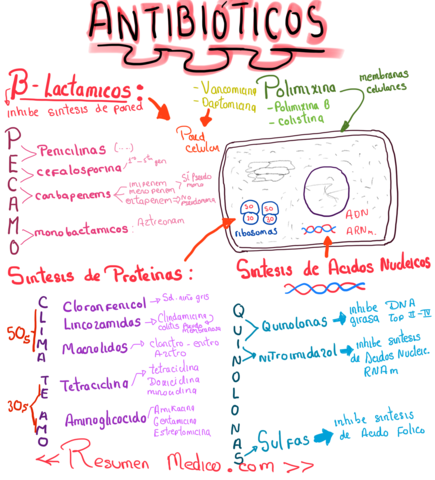 ANTIBIÓTICOS
B-Lactamicos:
inhibe sintesis de pared
- Vancomiana
- Daptomiana
Polimixina
- Polimixina B
- colistina
membranas
celulares
Pared
celular
PECAMO
Penicilinas (...)
cefalosporina 1ª-5ª gen
carbapenems
imipenem
meropenem
ertapenem
Sí Pseudo
mono
No
Pseudomona
monobactamicos: Aztreonam
50 50
30 30
ribosomas
ADN
ARNm.
Sintesis de Proteinas:
CLIMA TE AMO
50s
30s
Cloranfenicol Sd. niño gris
Lincozamidas Clindamicina
colitis Pseudo
membranosa
Macrolidos claritro - eritro
Azitro
Tetraciclina
tetraciclina
Doxiciclina
minociclina
Aminoglicocido
Amikacina
Gentamicina
Estreptomicina
Sintesis de Acidos Nucleicos
QUINOLONAS
Quinolonas
inhibe DNA
girasa top II-IV
nitroimidazol
inhibe sintesis
de Acidos Nucleic.
RNAm
Sulfas
inhibe sintesis
de Acido Folico
<< Resumen Medico.com >>